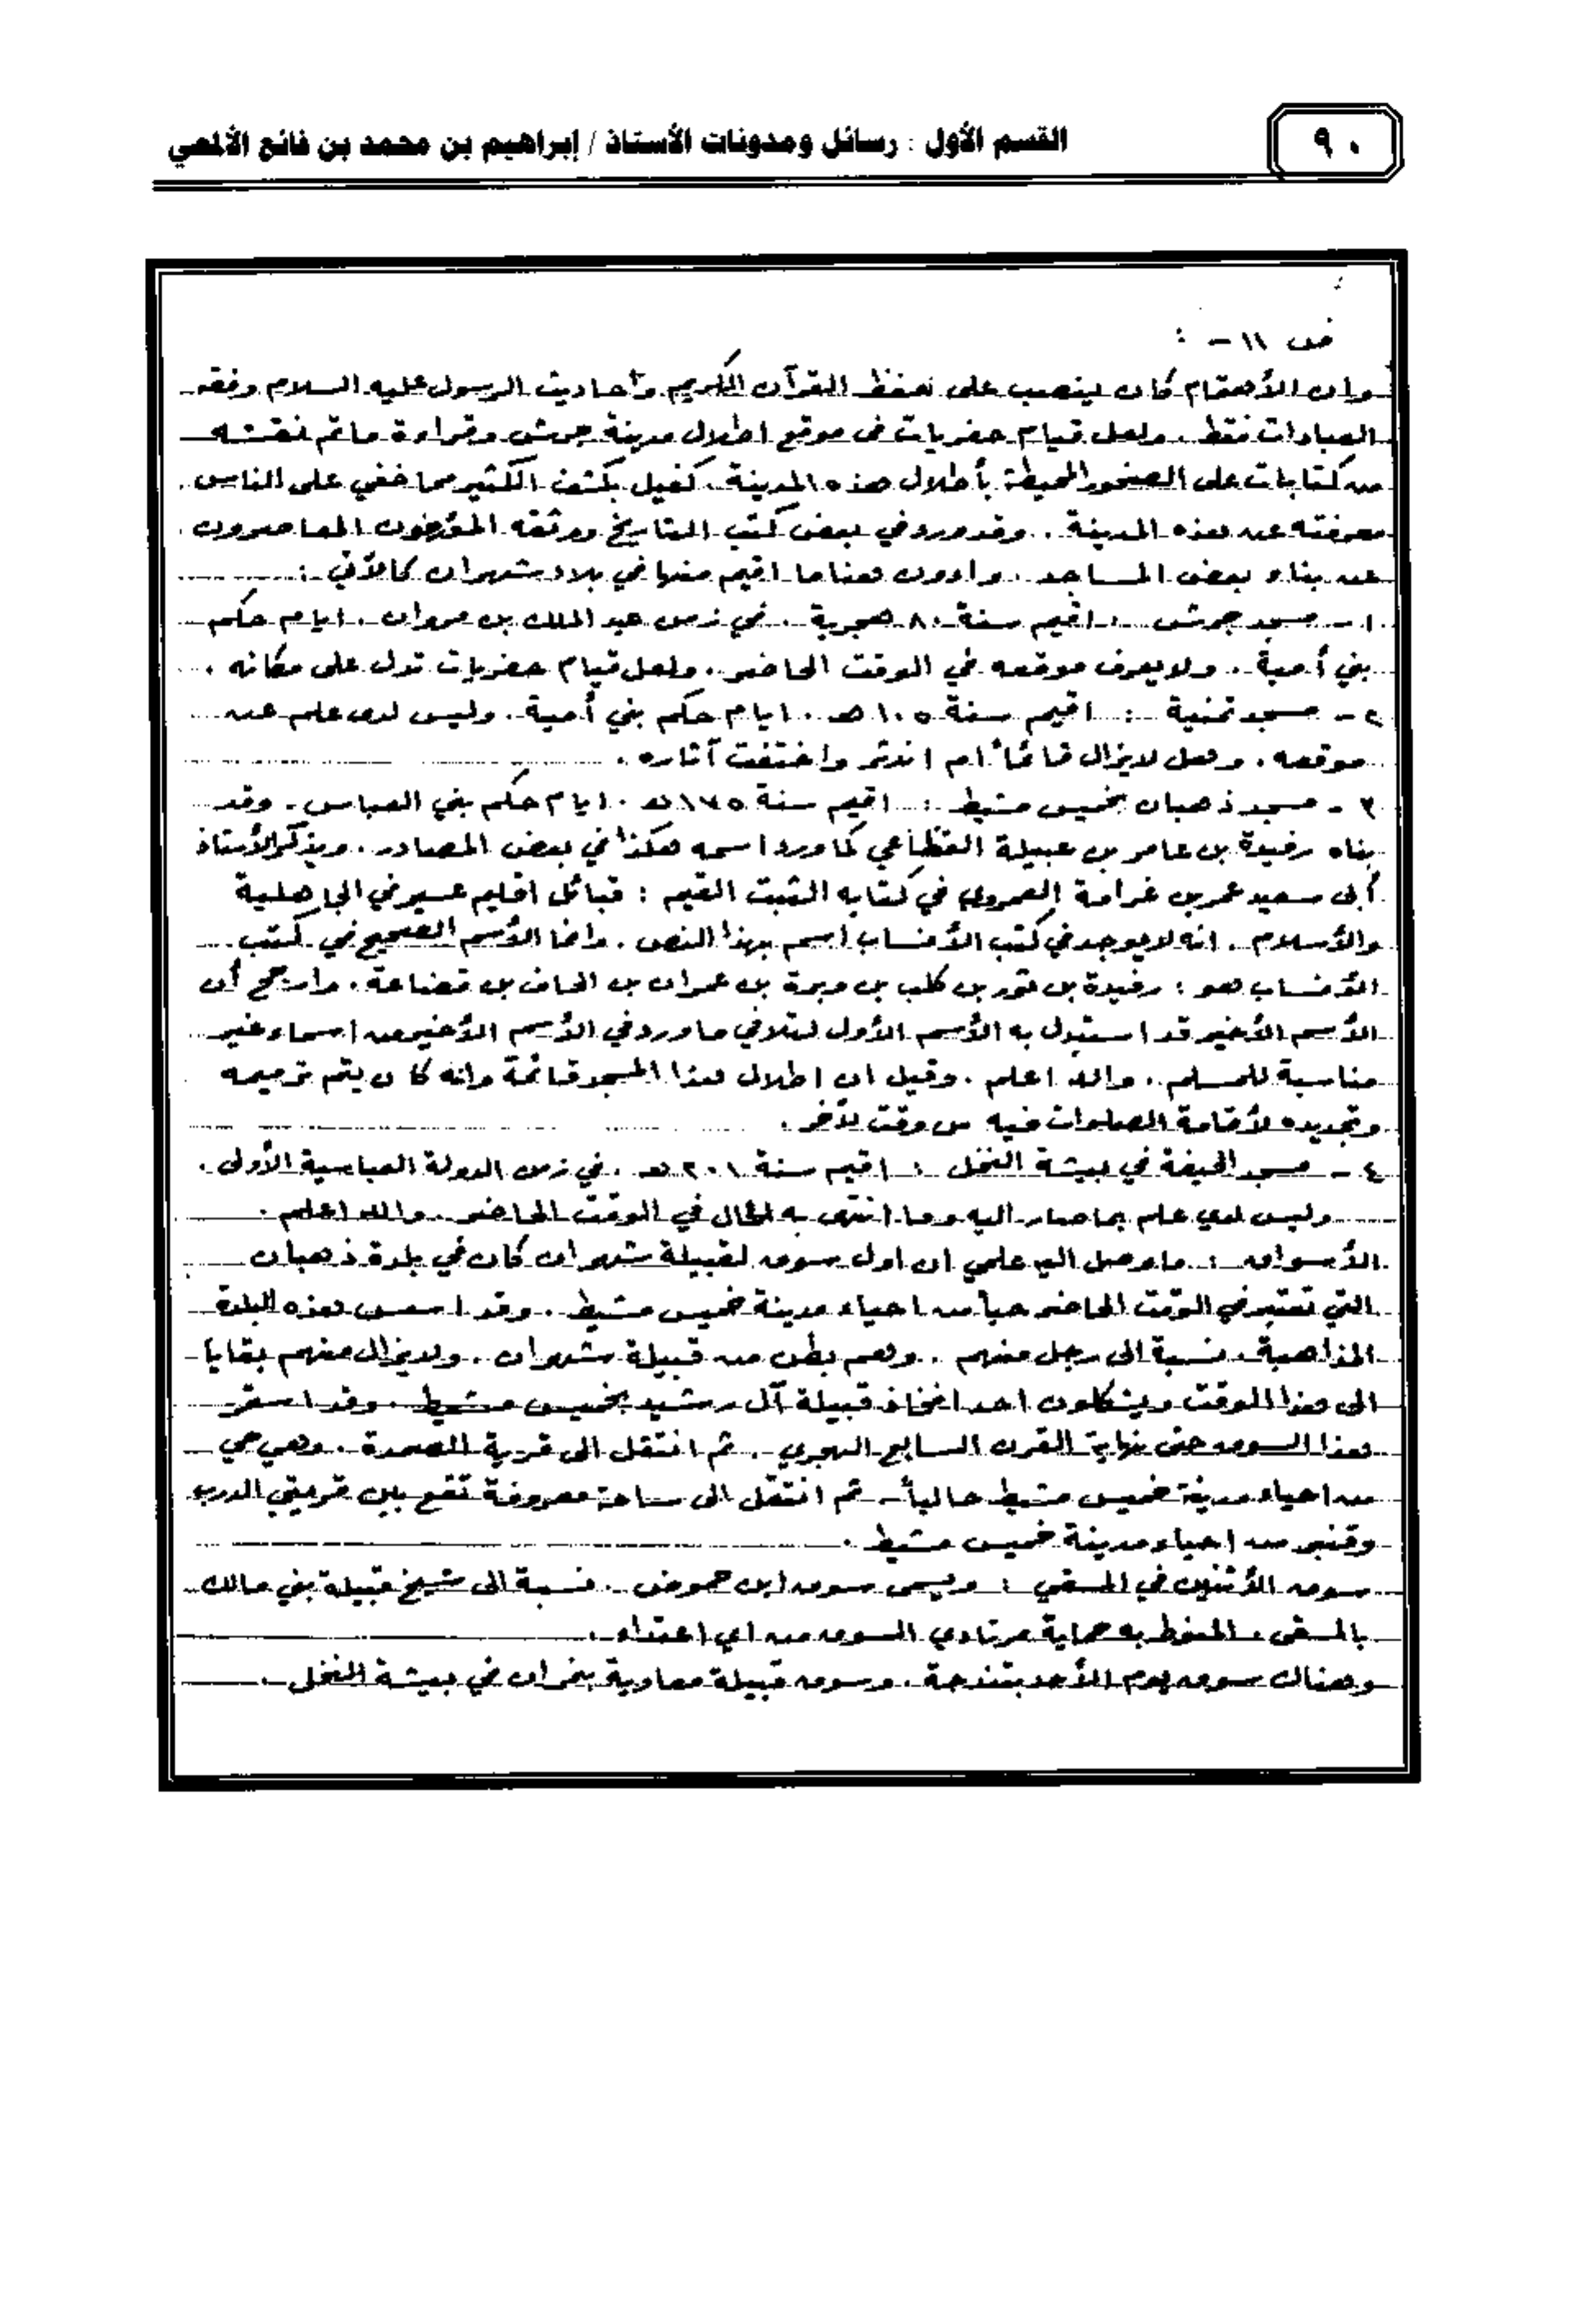 ٩٠
القسم الأول : رسائل ومدونات الأستاذ / إبراهيم بن محمد بن فائع الألمعي
ص ١١ - :
وان الأهتمام كان ينصب على حفظ القرآن الكريم وأحاديث الرسول عليه السلام وفقه
العبادات فقط . ولعل قيام حفريات في موقع اطلال مدينة جرش وقراءة ماتم نقشه
من كتابات على الصخور المحيطة بأطلال هذه المدينة . كفيل بكشف الكثير مما خفي على الناس
معرفته عن هذه المدينة .. وقد ورد في بعض كتب التاريخ ووثقه المؤرخون المعاصرون
عن بناء بعض المساجد . واورد هنا ما اقيم منها في بلاد شهران كالأتي :
١ - مسجد جرش : اقيم سنة ٨٠ هجرية . في زمن عبد الملك بن مروان . ايام حكم
بني أمية .. ولايعرف موقعه في الوقت الحاضر . ولعل قيام حفريات تدل على مكانه .
٢ - مسجد تمنية : اقيم سنة ١٠٥ هـ . ايام حكم بني أمية . وليس لدى علم عن
موقعه . وهل لايزال قائماً أم اندثر واختفت آثاره .
٣ - مسجد ذهبان بخميس مشيط : اقيم سنة ١٧٥ هـ . ايام حكم بني العباس . وقد
بناه رفيدة بن عامر بن عبيلة القظاعي كما ورد اسمه هكذا في بعض المصادر . ويذكر الأستاذ
أبى سعيد عمر بن غرامة العمروي في كتابه الثبت القيم : قبائل اقليم عسير في الجاهلية
والأسلام . انه لايوجد في كتب الأنساب اسم بهذا النص . وانما الأسم الصحيح في كتب
الأنساب هو : رفيدة بن ثور بن كلب بن وبرة بن عمران بن الحاف بن قضاعة . وارجح أن
الأسم الأخير قد استبدل به الأسم الأول لتلافي ماورد في الأسم الأخير من اسماء غير
مناسبة للمسلم . والله اعلم . وقيل ان اطلال هذا المسجد قائمة وانه كان يتم ترميمه
وتجديده لأقامة الصلوات فيه من وقت لآخر .
٤ - مسجد الحيفة في بيشة النخل : اقيم سنة ٢٠١ هـ . في زمن الدولة العباسية الأولى .
وليس لدي علم بما صار اليه وما انتهى به الحال في الوقت الحاضر . والله اعلم .
الأسواق : ماوصل اليه علمي ان اول سوق لقبيلة شهران كان في بلدة ذهبان
التي تعتبر في الوقت الحاضر حياً من احياء مدينة خميس مشيط . وقد اسس هذه البلدة
الذاهبة . نسبة الى رجل منهم . وهم بطن من قبيلة شهران . ولايزال منهم بقايا
الى هذا الوقت ويشكلون احد افخاذ قبيلة آل رشيد بخميس مشيط . وقد استمر
هذا السوق حتى نهاية القرن السابع الهجري . ثم انتقل الى قرية الصمدة . وهي حي
من احياء مدينة خميس مشيط حالياً - ثم انتقل الى ساحة معروفة تقع بين قريتي الدرب
وقنبر من احياء مدينة خميس مشيط .
سوق الأثنين في المسقي : ويسمى سوق ابن حموض . نسبة الى شيخ قبيلة بني مالك
بالمسقى . المنوط به حماية مرتادي السوق من اي اعتداء .
وهناك سوق يوم الأحد بتندحة . وسوق قبيلة معاوية بنمران في بيشة النخل .